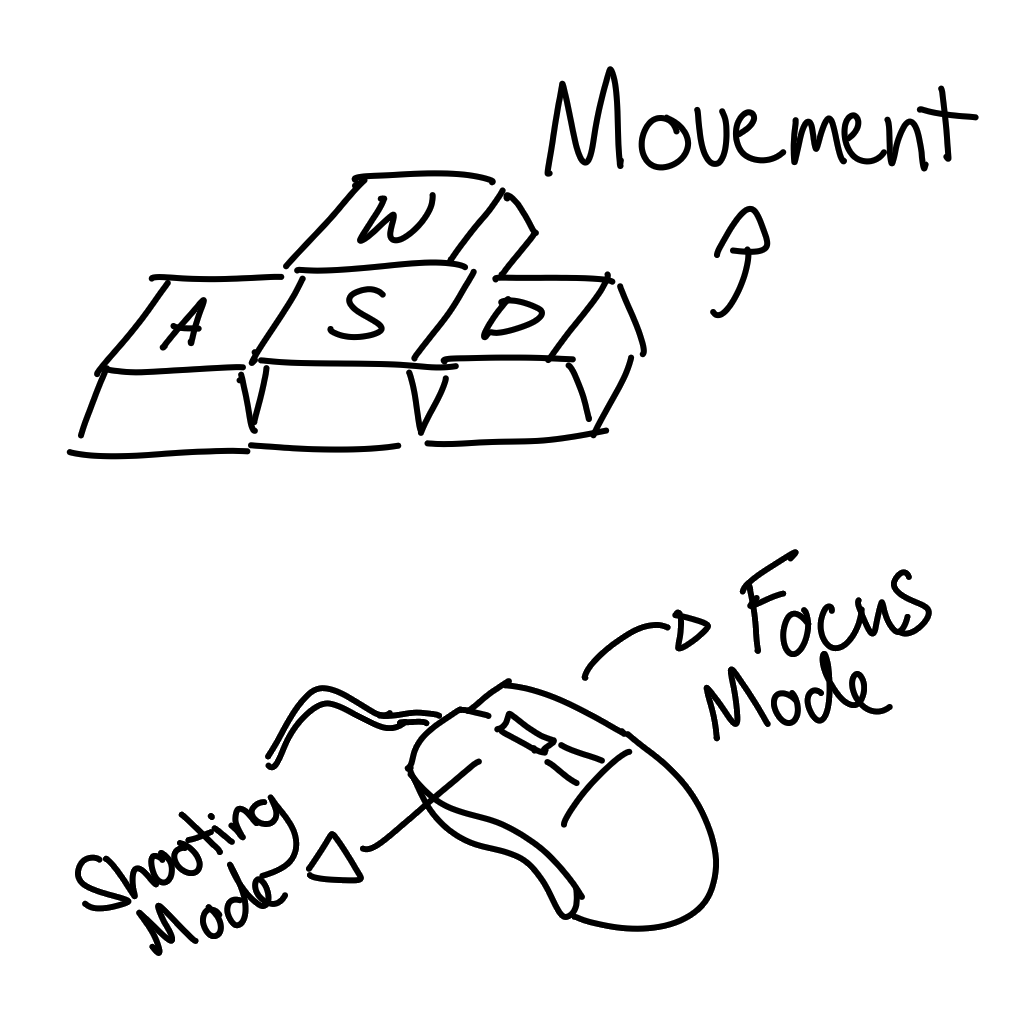 Movement
W
A S D
Focus
Mode
Shooting
Mode